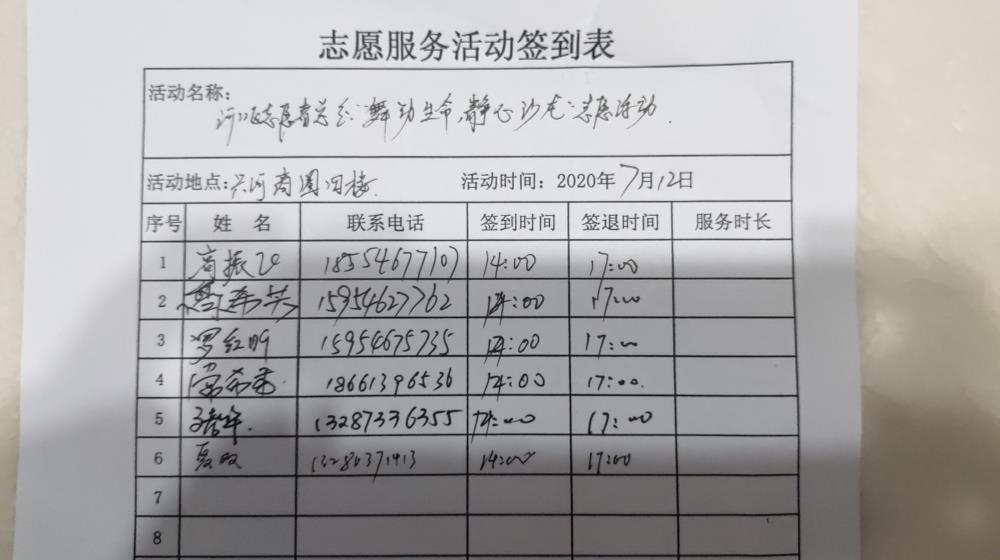 志愿服务活动签到表
活动名称:
河口区志愿者总会"舞动生命,静心沙龙"志愿活动.
活动地点: 商圈 活动时间: 2020年7月12日
序号 姓 名 联系电话 签到时间 签退时间 服务时长
1 高振 18554677107 14:00 17:00
2 15954627762 14:00 17:00
3 罗红 15954675735 14:00 17:00
4 18661396536 14:00 17:00.
5 13287336355 14:00 17:00
6 14:00 17:00
7
8